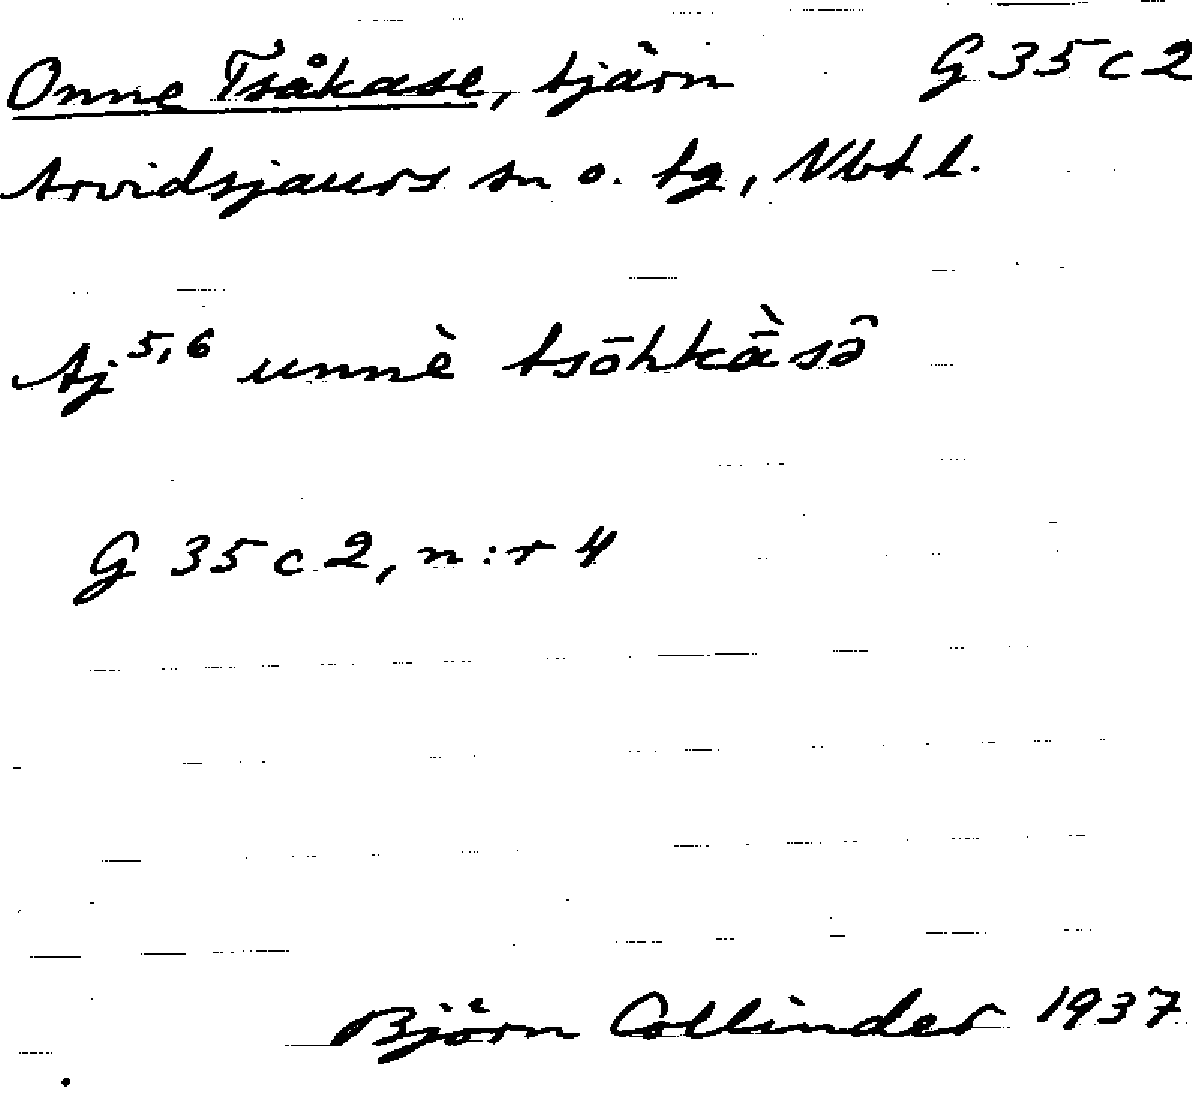 Onne Tsåkase, tjärn G 35 c 2
Arvidsjaurs sn o. tg, Nbt l.
Aj⁵,⁶ unnè tsōhkā̀sô
G 35 c 2, n:r 4
Björn Collinder 1937